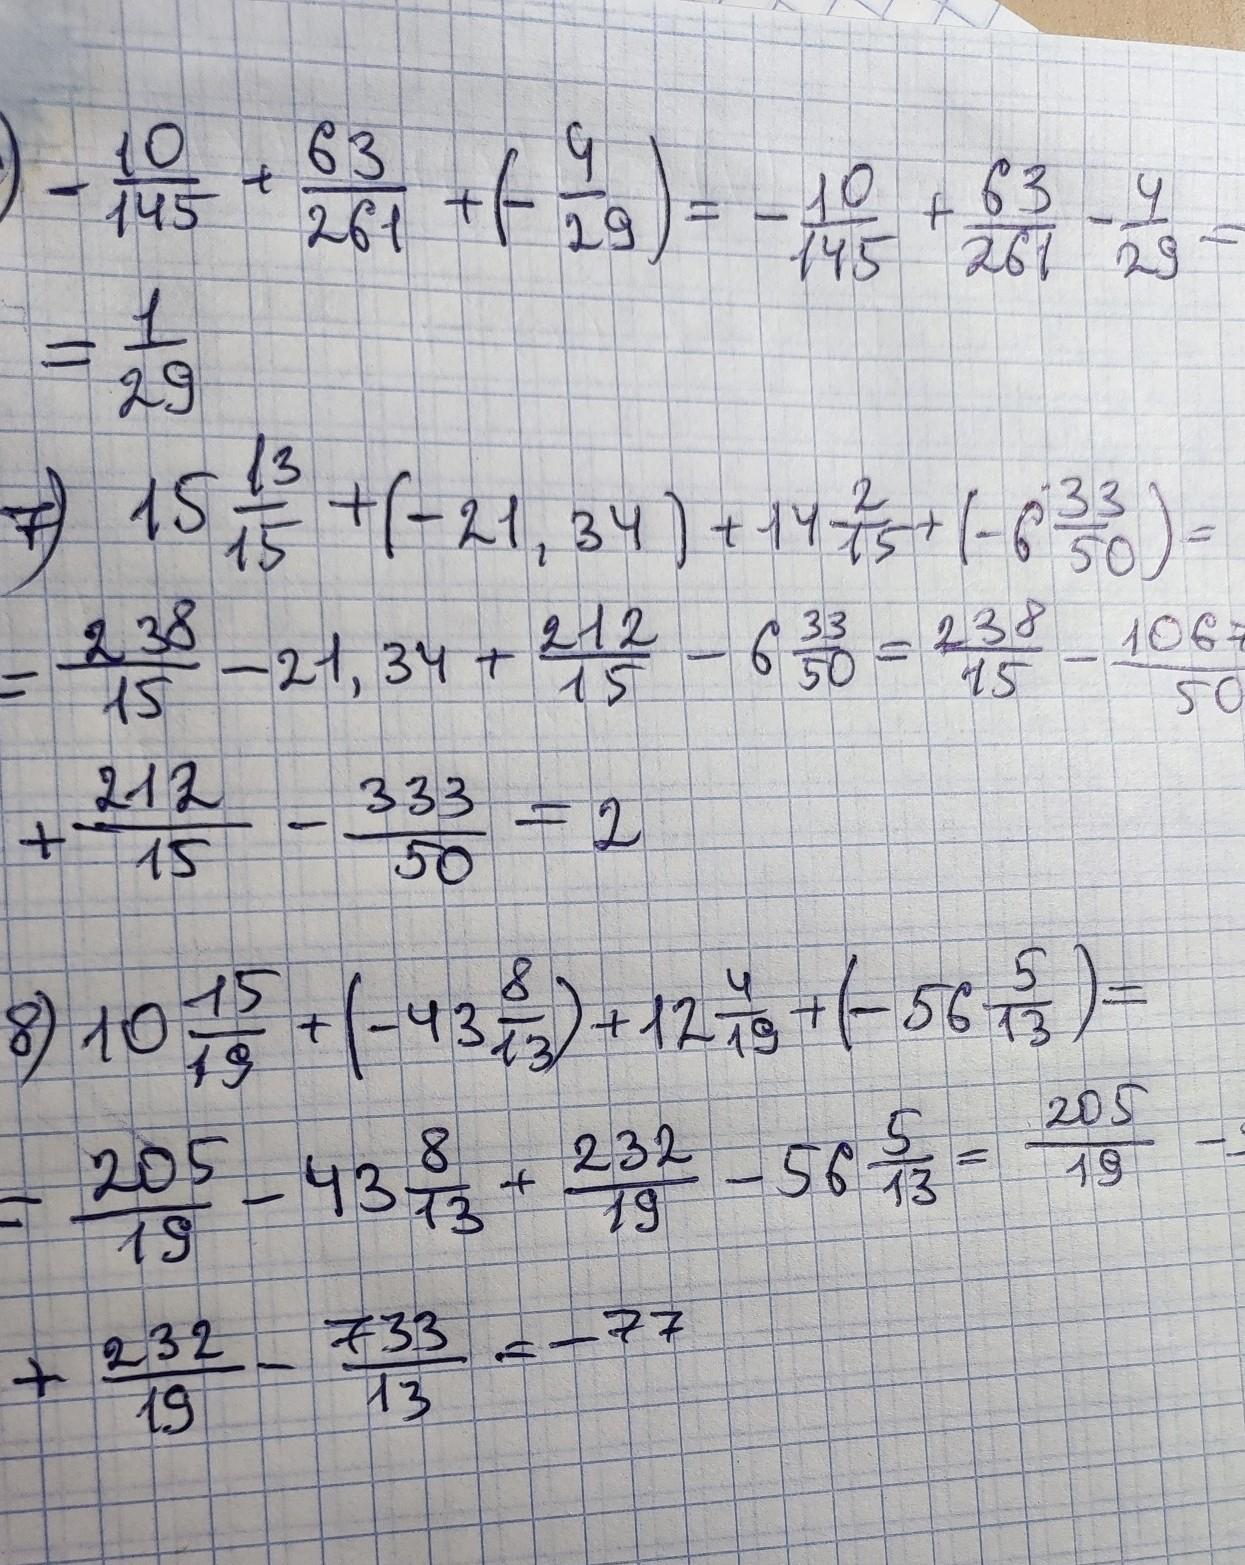 ) - 10/145 + 63/261 + (- 4/29) = - 10/145 + 63/261 - 4/29 =
= 1/29
7) 15 13/15 + (-21,34) + 14 2/15 + (-6 33/50) =
= 238/15 - 21,34 + 212/15 - 6 33/50 = 238/15 - 1067/50
+ 212/15 - 333/50 = 2
8) 10 15/19 + (-43 8/13) + 12 4/19 + (-56 5/13) =
= 205/19 - 43 8/13 + 232/19 - 56 5/13 = 205/19 -
+ 232/19 - 733/13 = -77